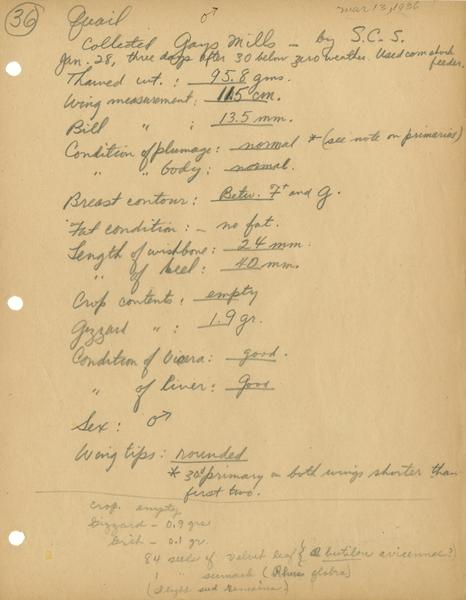 36
Quail ♂
Mar 13, 1936
Collected Gays Mills - by S.C.S.
Jan. 28, three days after 30 below zero weather. Used corn shock
feeder.
Thawed wt. : 95.8 gms.
Wing measurement: 11.5 cm.
Bill " : 13.5 mm.
Condition of plumage: normal * (see note on primaries)
" " body: normal.
Breast contour: Betw. F+ and G.
Fat condition: - no fat.
Length of wishbone: 24 mm.
" of keel: 40 mm.
Crop contents: empty
Gizzard " : 1.9 gr.
Condition of Vicera: good.
" of liver: Good
Sex: ♂
Wing tips: rounded
* 3rd primary on both wings shorter than
first two.
Crop. empty
Gizzard - 0.9 grs
Grit - 0.1 gr.
84 seeds of velvet leaf (Abutilon avicennae?)
1 " sumach (Rhus glabra)
(Slight seed remains)